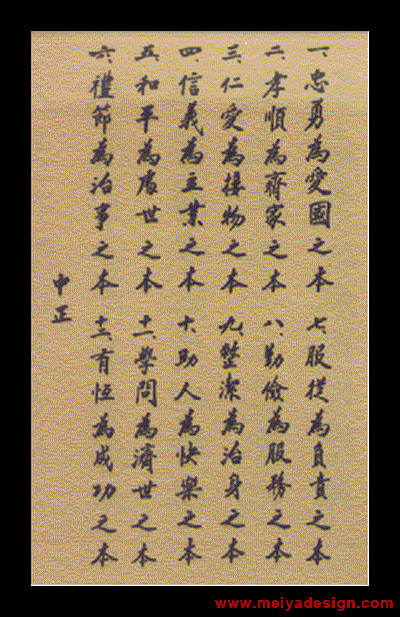 一、忠勇為愛國之本
二、孝順為齊家之本
三、仁愛為接物之本
四、信義為立業之本
五、和平為處世之本
六、禮節為治事之本
七、服從為負責之本
八、勤儉為服務之本
九、整潔為治身之本
十、助人為快樂之本
十一、學問為濟世之本
十二、有恒為成功之本
中正
www.meiyadesign.com